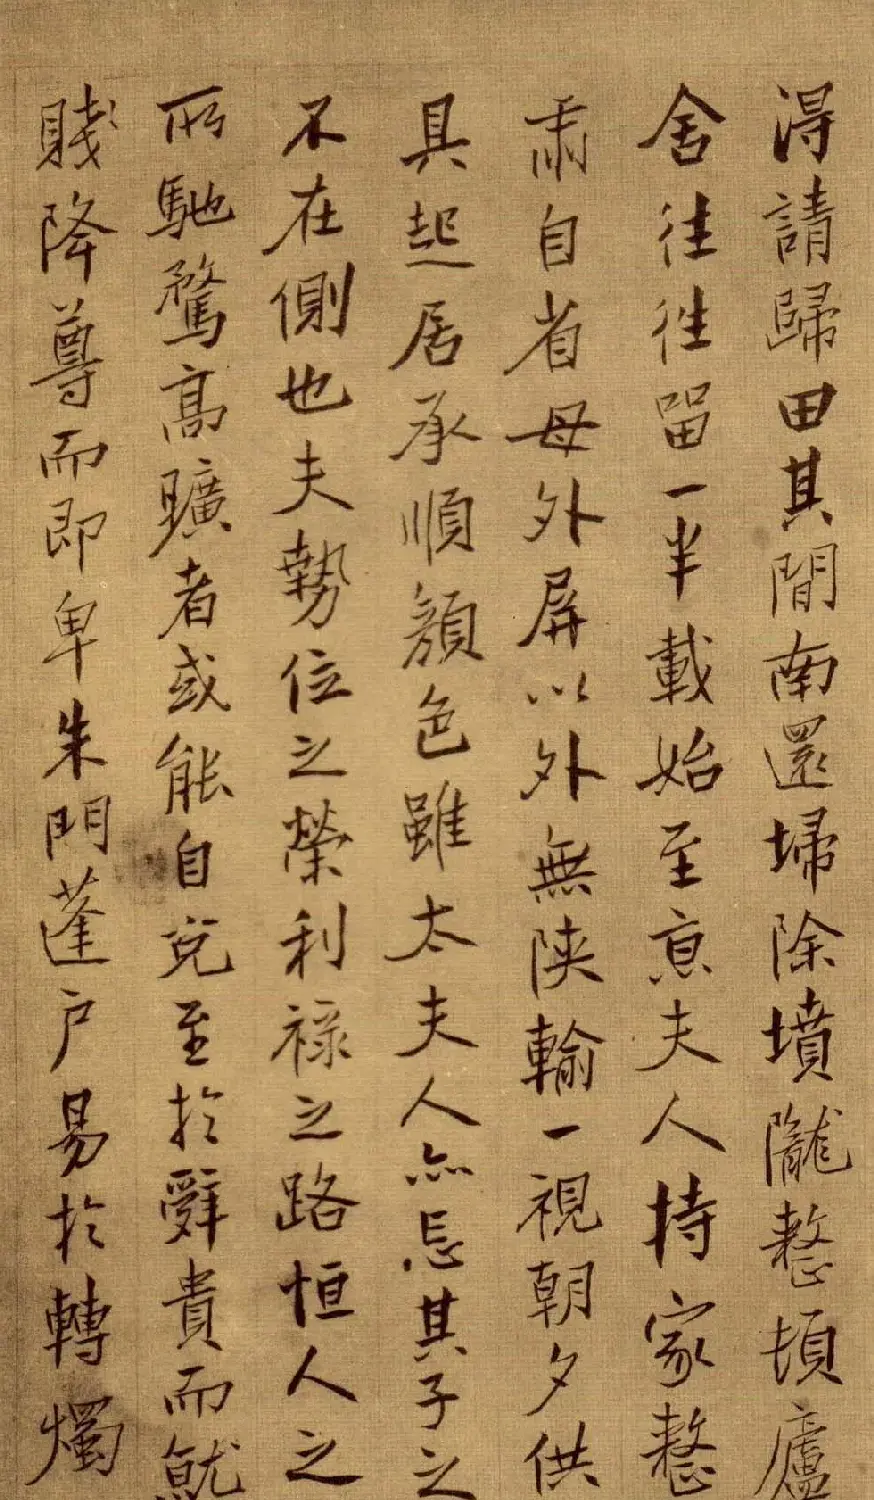 得請歸田其間南還埽除墳隴整頓廬
舍往往留一半載始至京夫人持家整
肅自省母外屏以外無陝輸一視朝夕供
具起居承順顏色雖太夫人亦忘其子之
不在側也夫勢位之榮利祿之路恒人之
所馳騖高曠者或能自克至於辭貴而就
賤降尊而即卑朱門蓬户易於轉燭